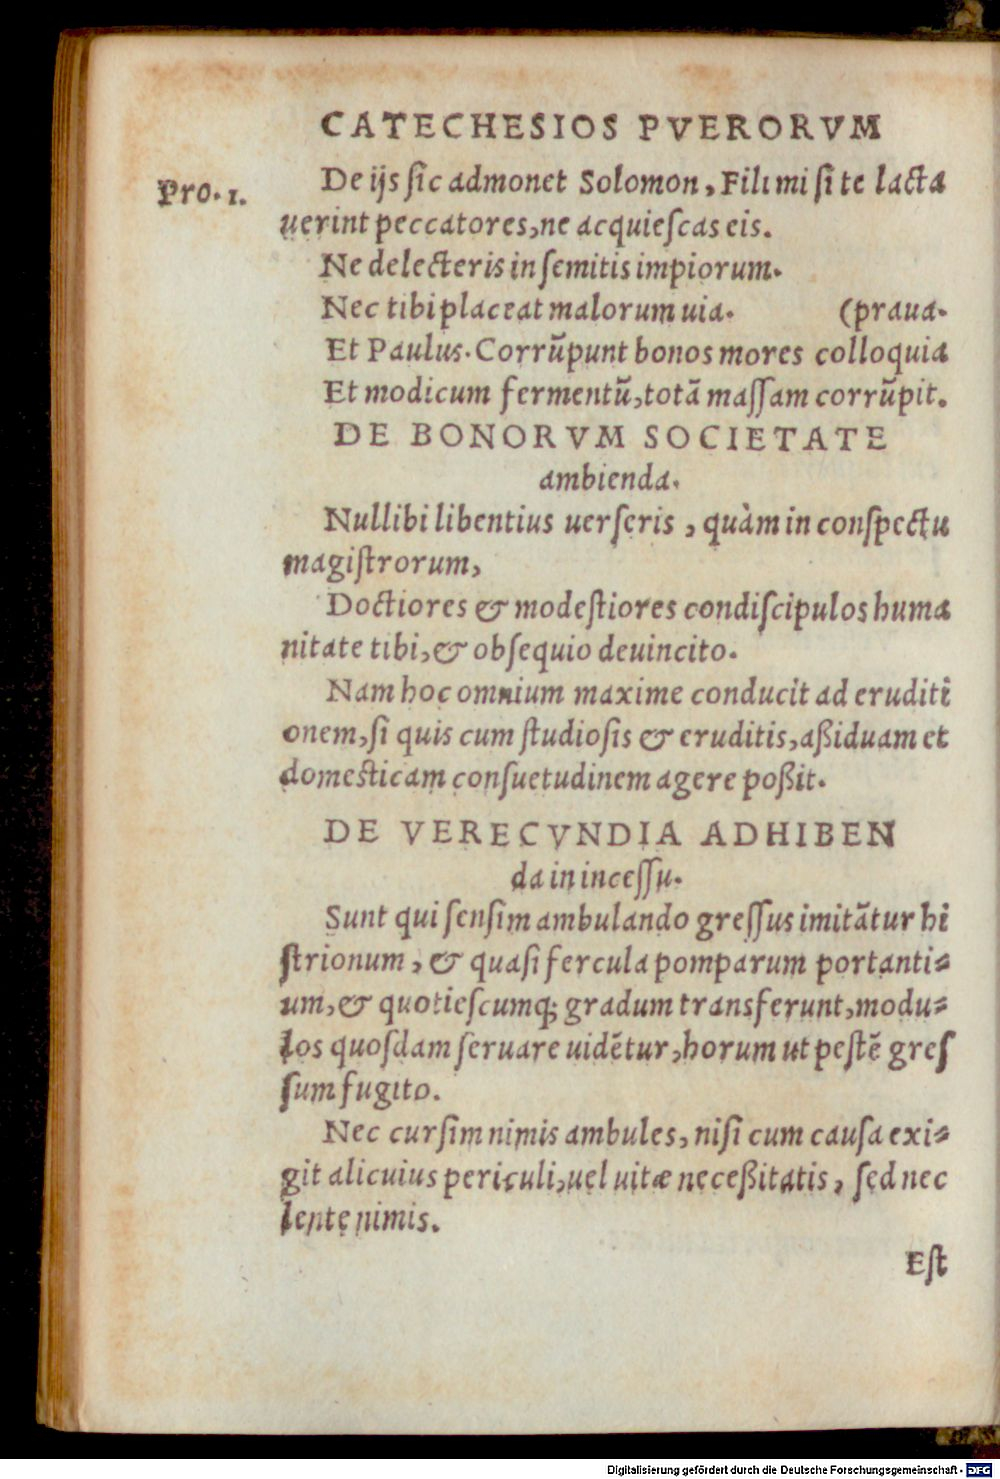 CATECHESIOS PVERORVM
Pro. 1.
De ijs ſic admonet Solomon, Fili mi ſi te lacta
uerint peccatores, ne acquieſcas eis.
Ne delecteris in ſemitis impiorum.
Nec tibi placeat malorum uia. (praua.
Et Paulus. Corrũpunt bonos mores colloquia
Et modicum fermentũ, totã maſſam corrũpit.
DE BONORVM SOCIETATE
ambienda.
Nullibi libentius uerſeris, quàm in conſpectu
magiſtrorum,
Doctiores & modeſtiores condiſcipulos huma
nitate tibi, & obſequio deuincito.
Nam hoc omnium maxime conducit ad eruditi
onem, ſi quis cum ſtudioſis & eruditis, aßiduam et
domeſticam conſuetudinem agere poßit.
DE VERECVNDIA ADHIBEN
da in inceſſu.
Sunt qui ſenſim ambulando greſſus imitãtur hi
ſtrionum, & quaſi fercula pomparum portanti⸗
um, & quotieſcumq; gradum transferunt, modu⸗
los quoſdam ſeruare uidẽtur, horum ut peſtẽ greſ
ſum fugito.
Nec curſim nimis ambules, niſi cum cauſa exi⸗
git alicuius periculi, uel uitæ neceßitatis, ſed nec
lente nimis.
Eſt
Digitalisierung gefördert durch die Deutsche Forschungsgemeinschaft - DFG